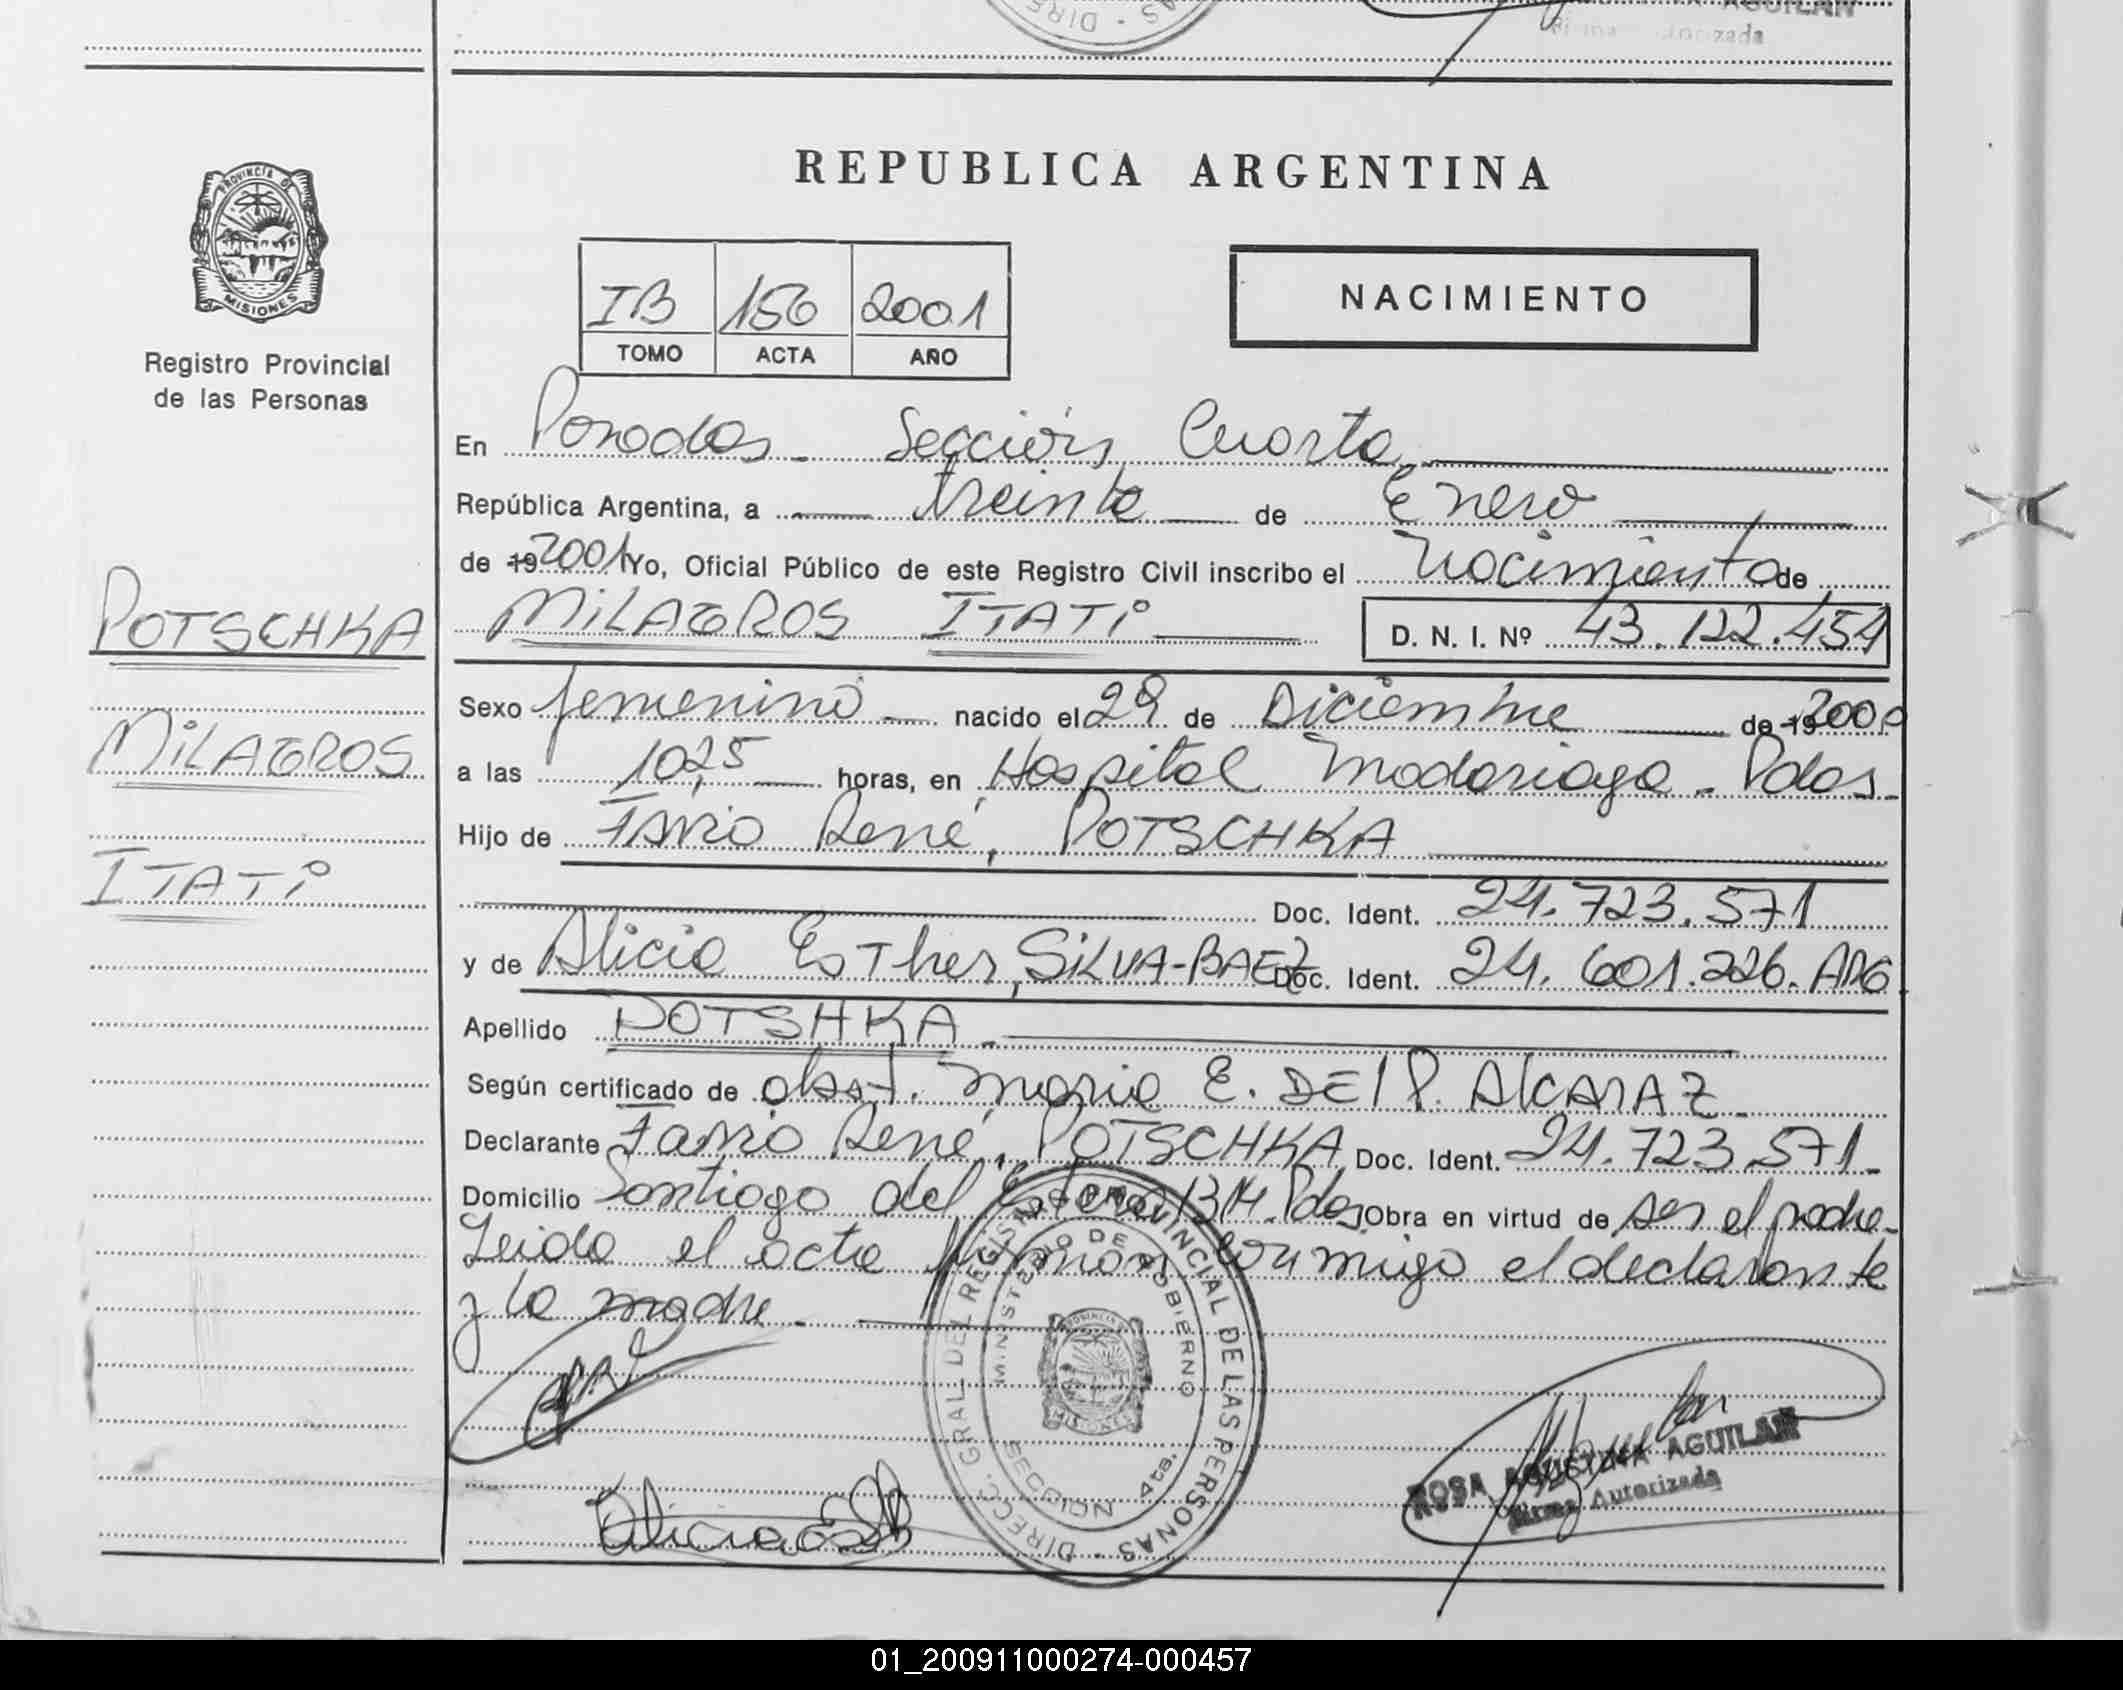 AGUILAR
Firma Autorizada
PROVINCIA DE
MISIONES
Registro Provincial
de las Personas
POTSCHKA
MILAGROS
ITATI
REPUBLICA ARGENTINA
IB 156 2001
TOMO ACTA AÑO
NACIMIENTO
En Posadas - Sección Cuarta
República Argentina, a treinta de Enero
de 19 2001 Yo, Oficial Público de este Registro Civil inscribo el Nacimiento de
MILAGROS ITATI D. N. I. Nº 43.122.454
Sexo femenino nacido el 29 de Diciembre de 19 2000
a las 10,25 horas, en Hospital Madariaga - Pdas-
Hijo de Favio René, POTSCHKA
Doc. Ident. 24.723.571
y de Alicia Esther, SILVA-BAEZ Doc. Ident. 24.601.226. ARG
Apellido POTSHKA -
Según certificado de obst. Maria E. DEL P. ALCARAZ -
Declarante Favio René, POTSCHKA Doc. Ident. 24.723.571-
Domicilio Santiago del Estero 1314. Pdas Obra en virtud de ser el padre-
Leida el acta firman conmigo el declarante
y la madre -
DIREC. GRAL. DEL REGISTRO PROVINCIAL DE LAS PERSONAS
MINISTERIO DE GOBIERNO
MISIONES
SECCION 4ta.
ROSA AGUSTINA AGUILAR
Firma Autorizada
01_200911000274-000457